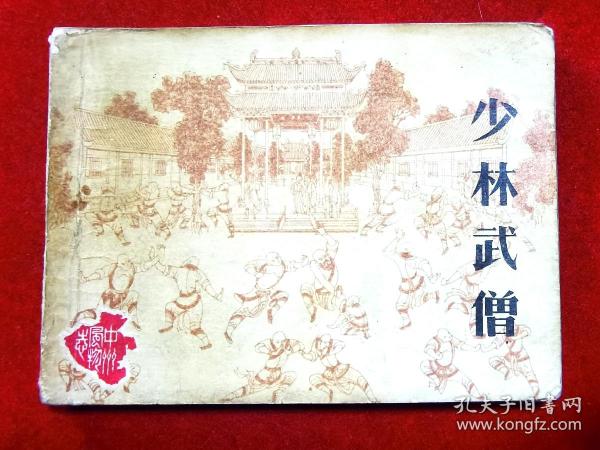 少林武僧
中州
风物
志
孔夫子旧書网
www.kongfz.com